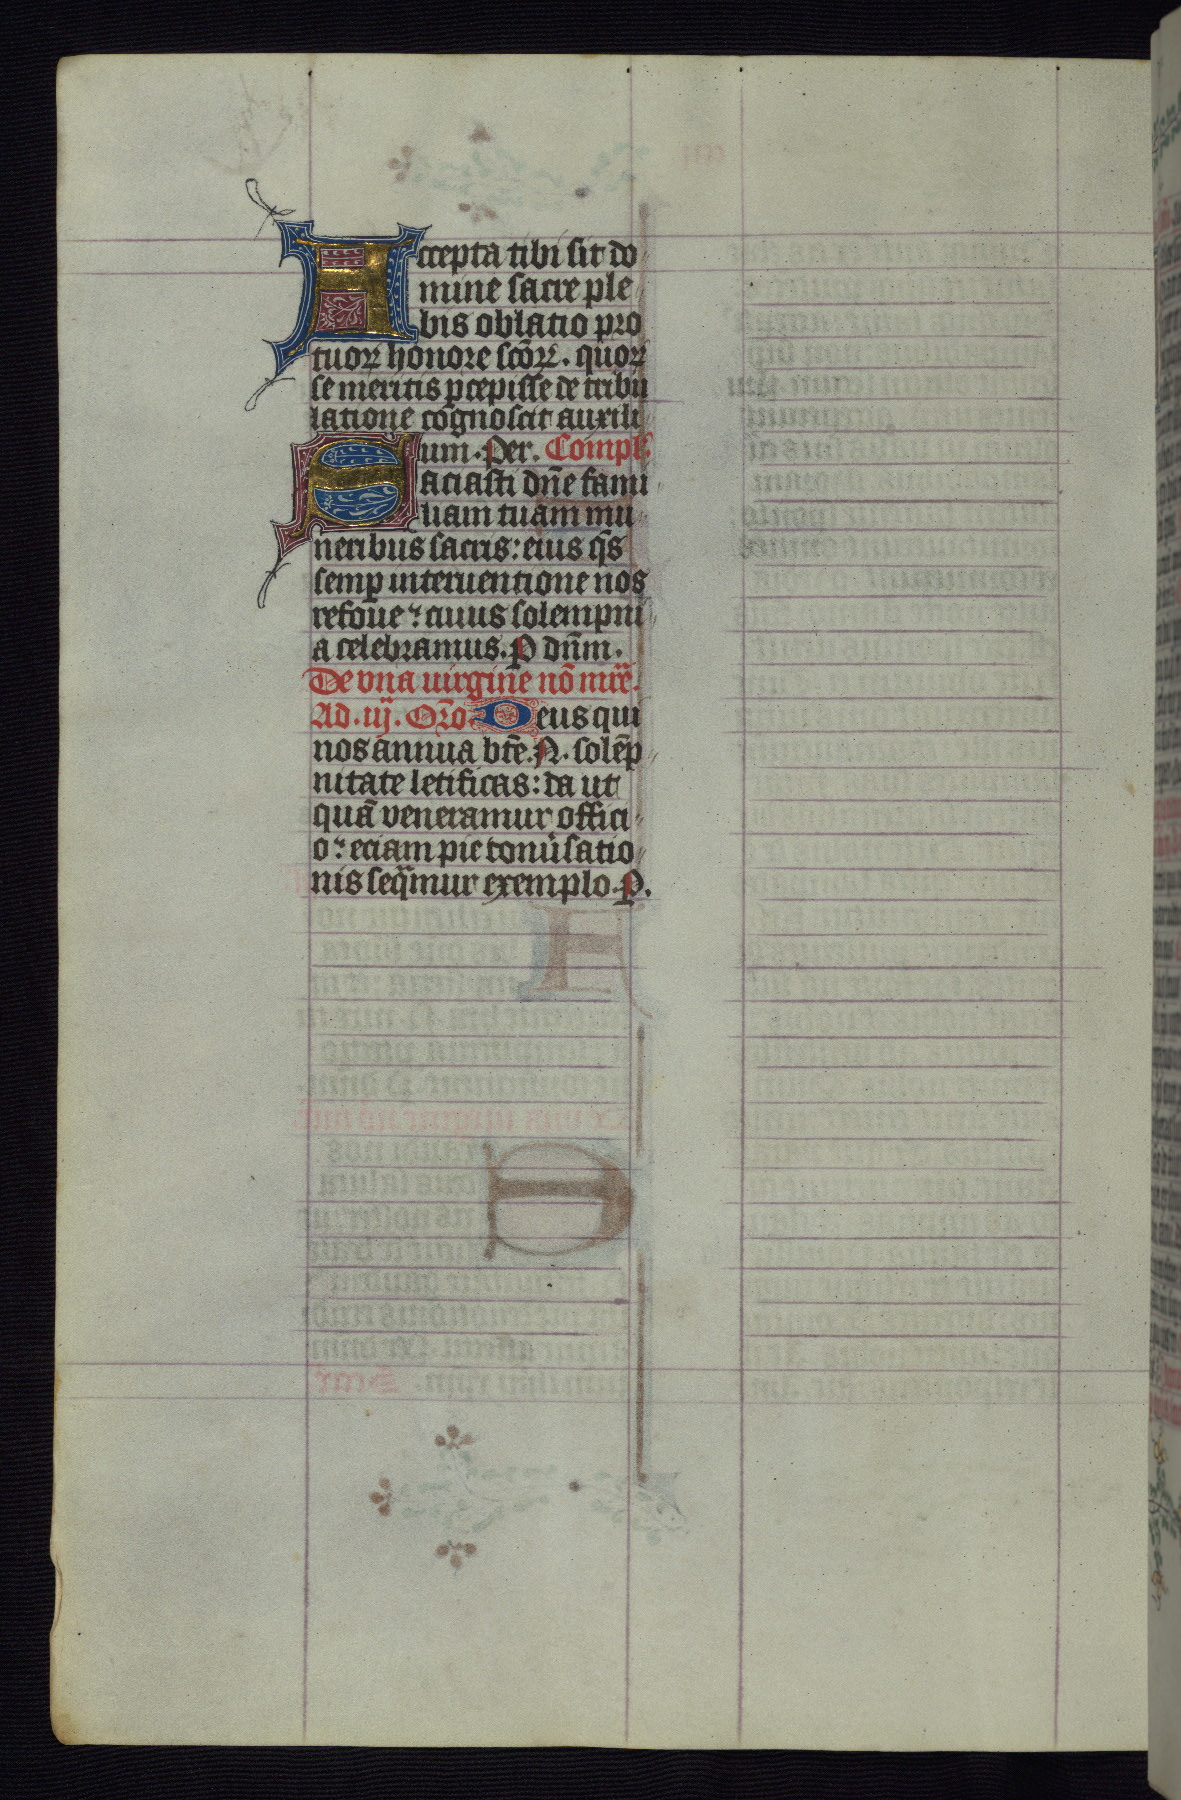 Accepta tibi sit do
mine sacre ple
bis oblatio pro
tuoꝝ honore sc̄oꝝ. quoꝝ
se meritis ꝑcepisse de tribu
latione cognoscit auxili
um. Per. Compl̄.
Saciasti dn̄e fami
liam tuam mu
neribus sacris: eius q̄s
semꝑ interuentione nos
refoue: cuius solempni
a celebramus. P dn̄m.
De vna uirgine nō mr̄e.
Ad .iij. Or̄o. Deus qui
nos annua bt̄e .N. solēp
nitate letificas: da ut
quā veneramur offici
o: eciam pie conūsatio
nis seq̄mur exemplo. P.